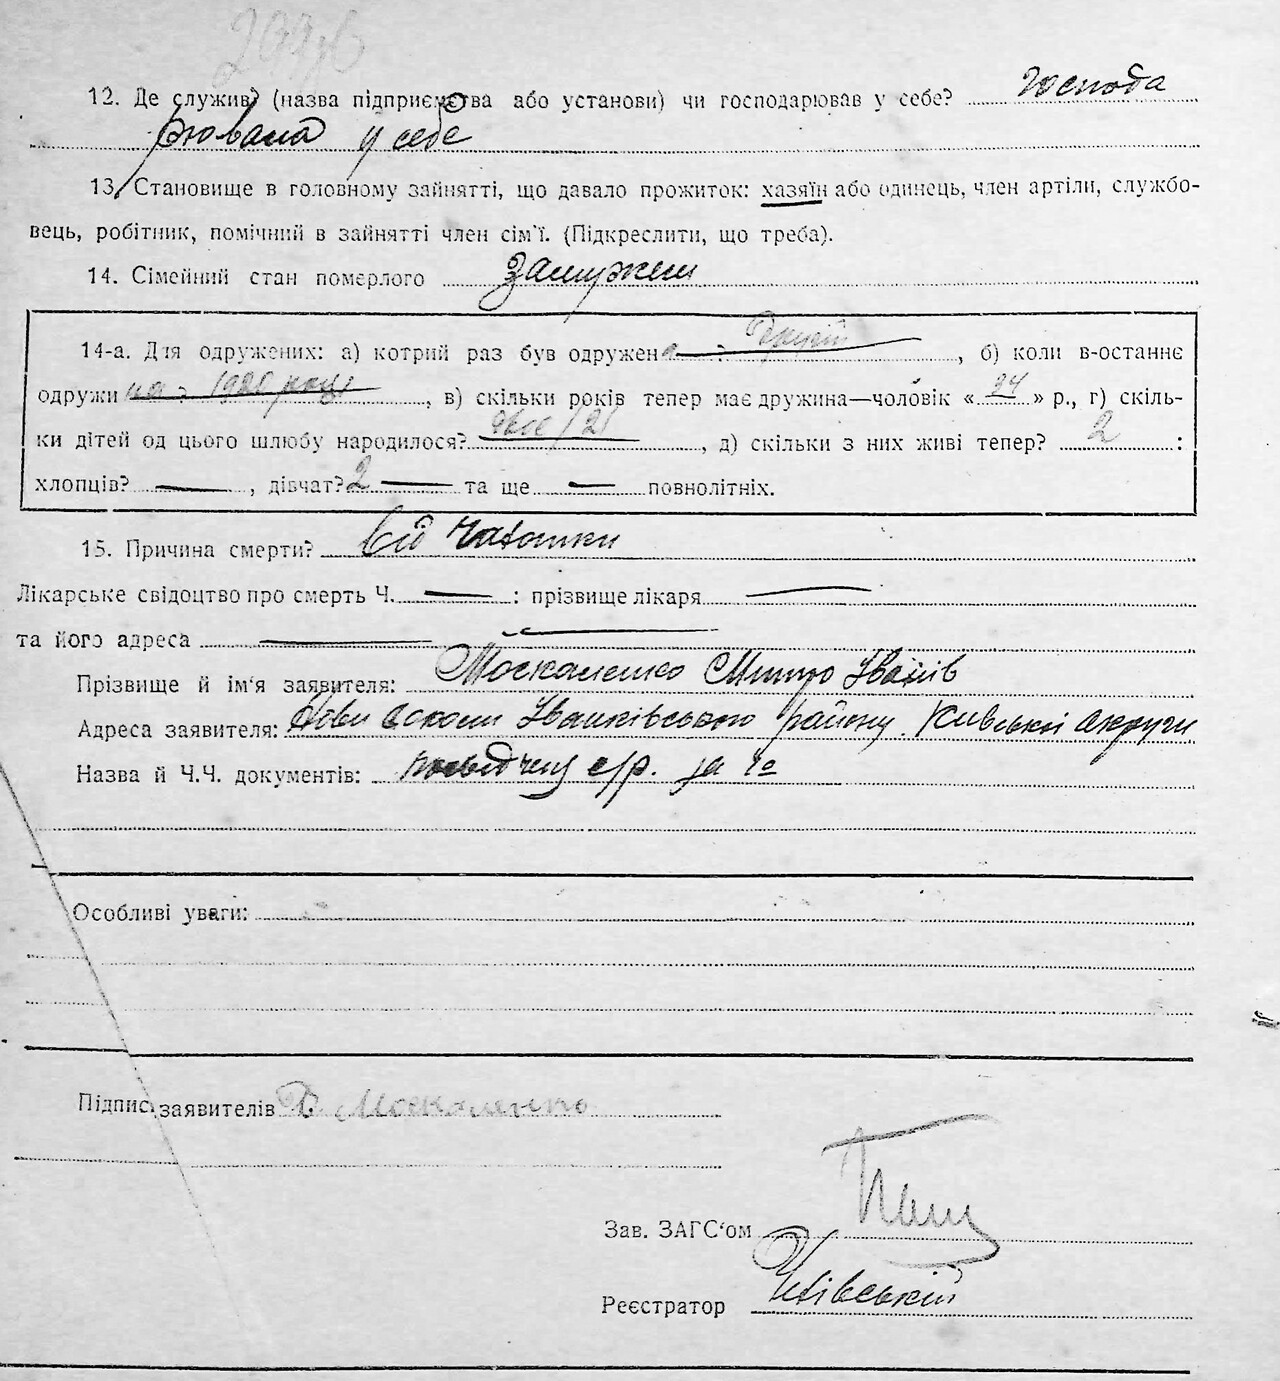 12. Де служив? (назва підприємства або установи) чи господарював у себе? господа
рювала у себе
13. Становище в головному зайнятті, що давало прожиток: хазяїн або одинець, член артіли, службо-
вець, робітник, помічний в зайнятті член сім'ї. (Підкреслити, що треба).
14. Сімейний стан померлого замужем
14-а. Для одружених: а) котрий раз був одружена : другий, б) коли в-останнє
одружи на : 1920 році, в) скільки років тепер має дружина—чоловік « 34 » р., г) скіль-
ки дітей од цього шлюбу народилося? двоє /2/, д) скільки з них живі тепер? 2 :
хлопців? —, дівчат? 2 — та ще — повнолітніх.
15. Причина смерти? Від
Лікарське свідоцтво про смерть Ч. — : прізвище лікаря —
та його адреса —
Прізвище й ім'я заявителя: Москаленко Митро Іванів
Адреса заявителя: Іванківського району Київської округи
Назва й Ч.Ч. документів: с/р. за
Особливі уваги:
Підпис заявителів Д Москаленко
Зав. ЗАГС'ом
Реєстратор